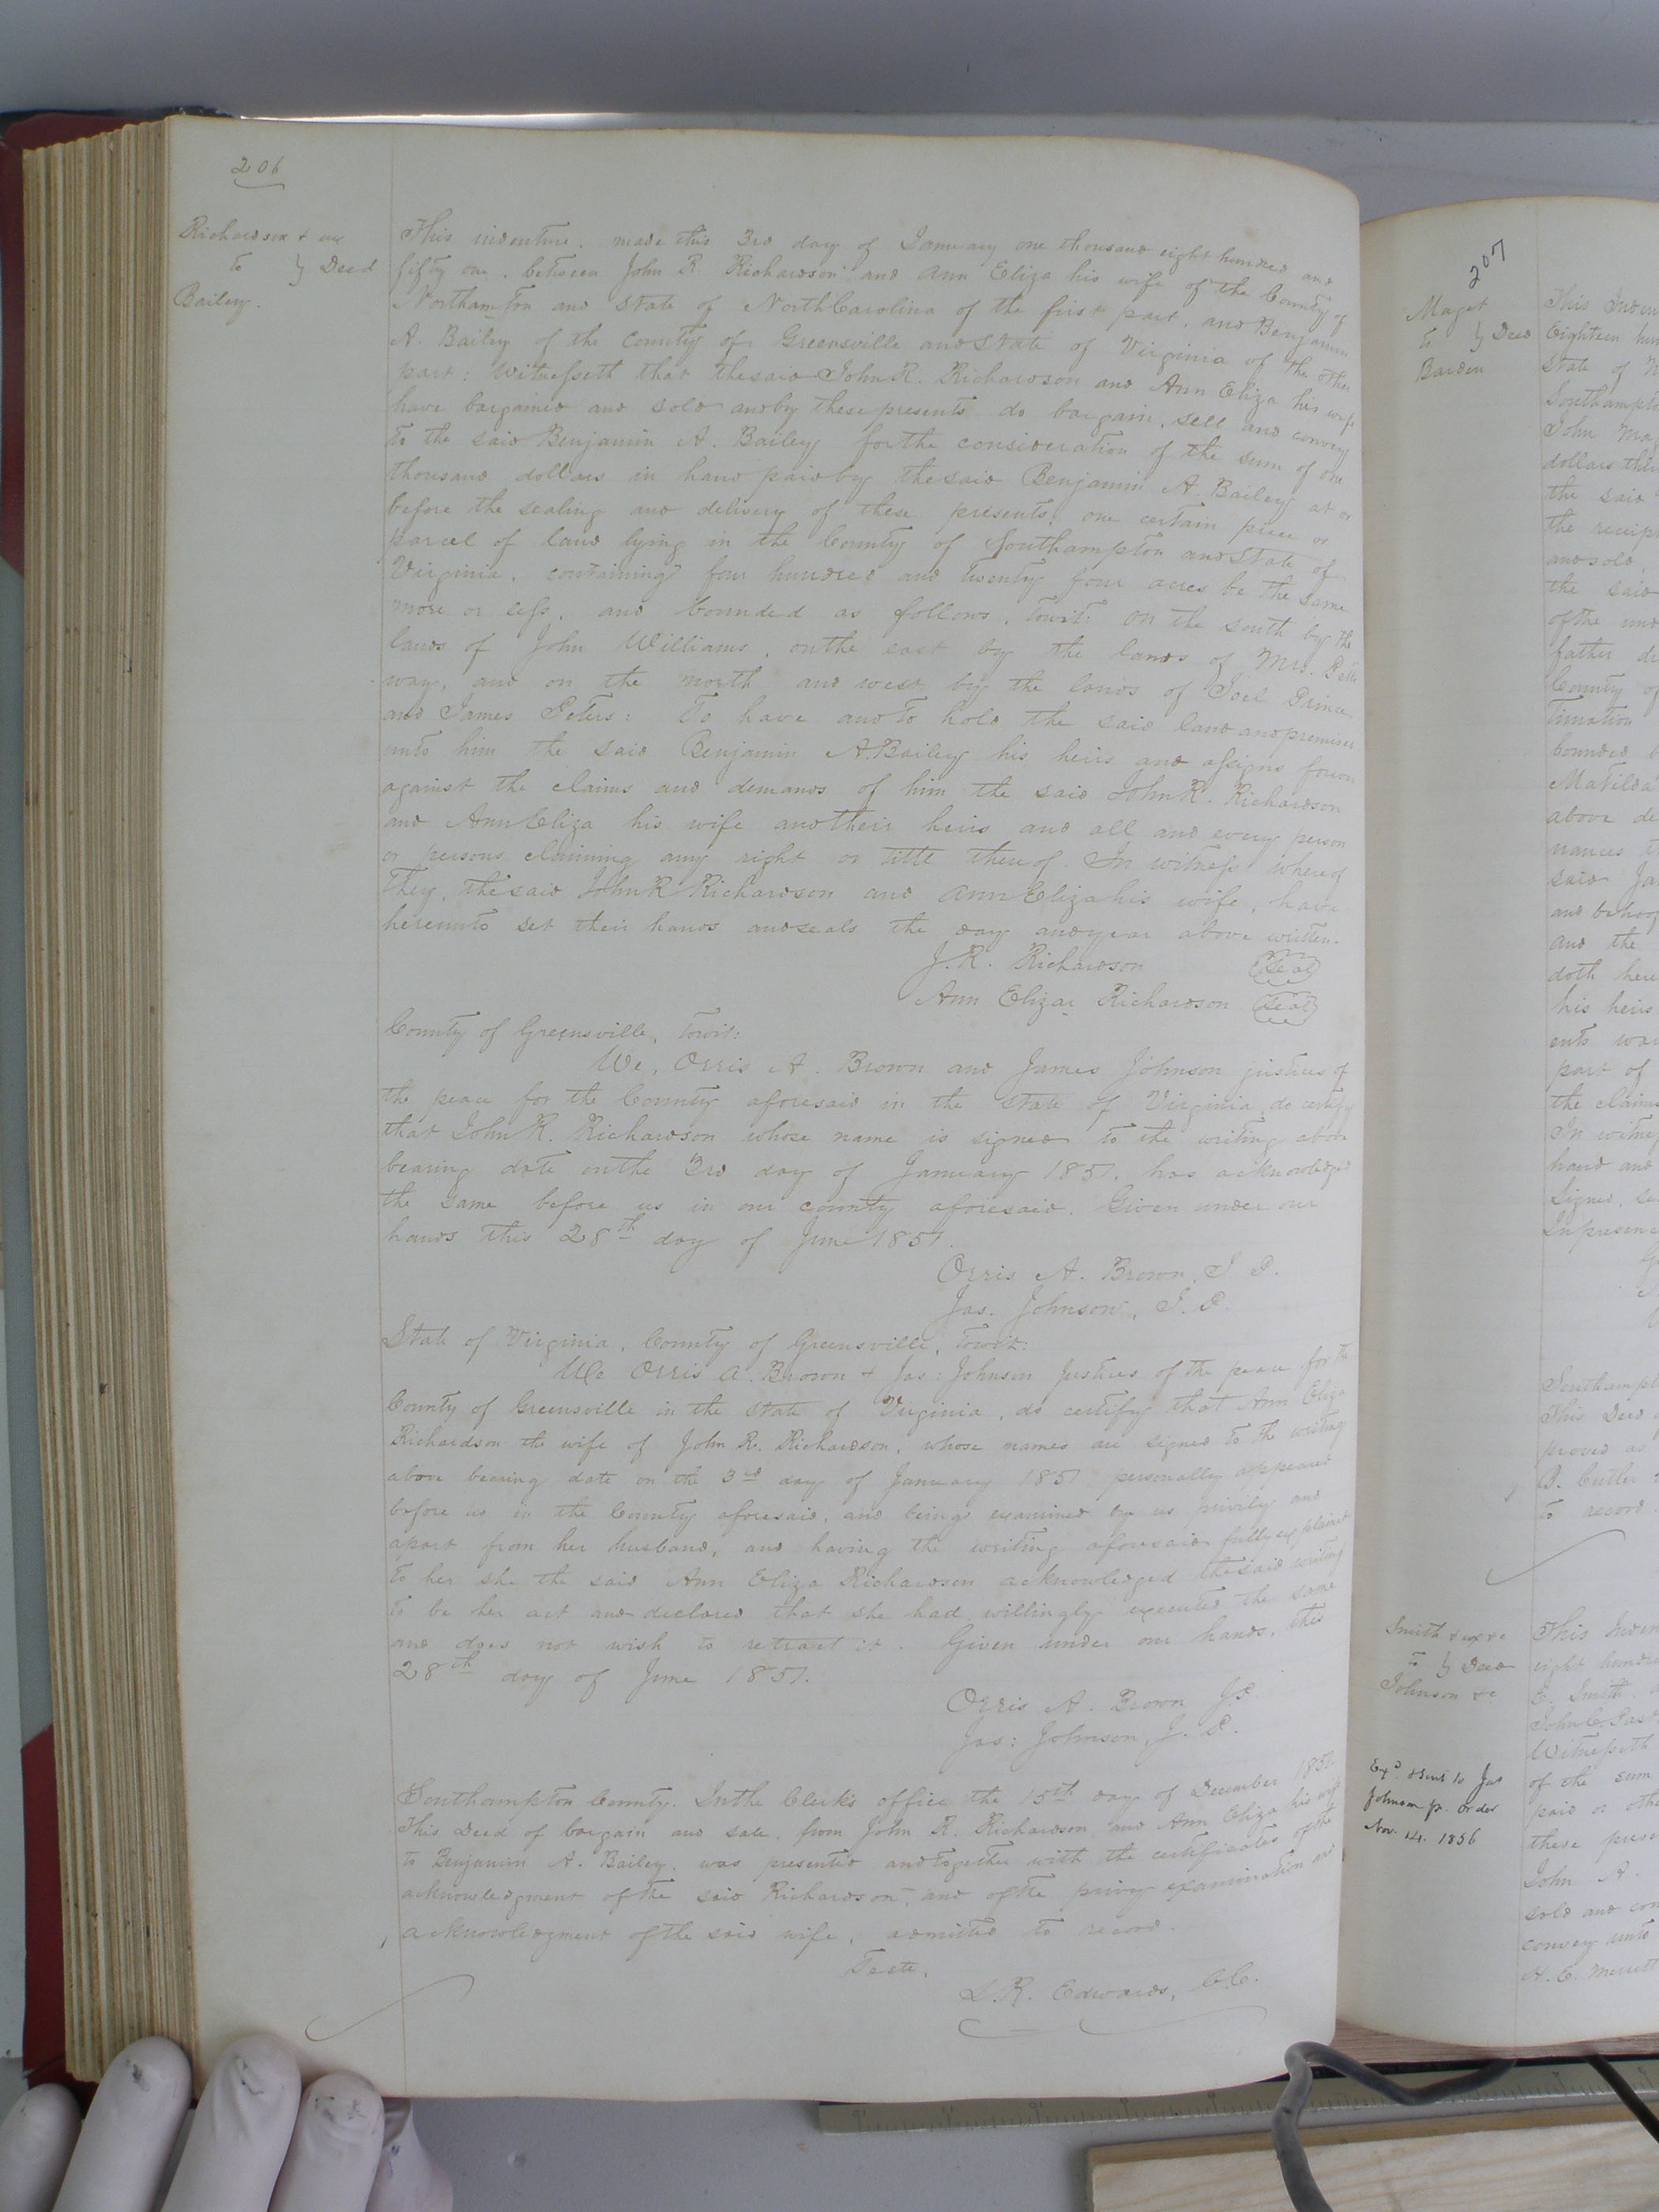 206
Richardson & ux
to } Deed
Bailey.
This indenture, made this 3rd day of January one thousand eight hundred and
fifty one, between John R. Richardson and Ann Eliza his wife of the County of
Northamton and State of North Carolina of the first part, and Benjamin
A. Bailey of the County of Greensville and State of Virginia of the other
part: Witnesseth that the said John R. Richardson and Ann Eliza his wife
have bargained and sold and by these presents do bargain, sell and convey
to the said Benjamin A. Bailey for the consideration of the sum of one
thousand dollars in hand paid by the said Benjamin A. Bailey at or
before the sealing and delivery of these presents, one certain piece or
parcel of land lying in the County of Southampton and State of
Virginia, containing four hundred and twenty four acres be the same
more or less, and bounded as follows, towit: on the south by the
lands of John Williams, on the east by the lands of Mrs.
way, and on the north and west by the lands of Joel Prince,
and James Peters: To have and to hold the said land and premises
unto him the said Benjamin A. Bailey his heirs and assigns forever
against the claims and demands of him the said John R. Richardson
and Ann Eliza his wife and their heirs and all and every person
or persons claiming any right or title thereof. In witness whereof
they, the said John R Richardson and Ann Eliza his wife, have
hereunto set their hands and seals the day and year above written.
J. R. Richardson (Seal)
Ann Eliza Richardson (Seal)
County of Greensville, towit:
We, Orris A. Brown and James Johnson justices of
the peace for the County aforesaid in the State of Virginia, do certify
that John R. Richardson whose name is signed to the writing above
bearing date on the 3rd day of January 1851, has acknowledged
the same before us in our county aforesaid. Given under our
hands this 28th day of June 1851.
Orris A. Brown, J. P.
Jas. Johnson, J. P.
State of Virginia, County of Greensville, towit:
We Orris A. Brown & Jas: Johnson Justices of the peace for the
County of Greensville in the State of Virginia, do certify that Ann Eliza
Richardson the wife of John R. Richardson, whose names are signed to the writing
above bearing date on the 3rd day of January 1851 personally appeared
before us in the County aforesaid, and being examined by us privily and
apart from her husband, and having the writing aforesaid fully explained
to her she the said Ann Eliza Richardson acknowledged the said writing
to be her act and declared that she had willingly executed the same
and does not wish to retract it. Given under our hands, this
28th day of June 1851.
Orris A. Brown J.P.
Jas: Johnson, J. P.
Southampton County. In the Clerk's office the 15th day of December 1851.
This Deed of bargain and sale, from John R. Richardson and Ann Eliza his wife
to Benjamin A. Bailey, was presented and together with the certificates of the
acknowledgment of the said Richardson, and of the privy examination and
acknowledgment of the said wife, admitted to record.
Teste,
L. R. Edwards, C.C.
207
Maget
to } Deed
Barden
This Inden
Eighteen hun
State of
Southampto
John Mag
dollars
the said
the receip
and sold,
the said
of the und
father
County of
timation
bounded
Matilda
above de
nances
said Ja
and behoof
and the
doth here
his heirs
ents
part of
the claims
In witness
hand and
Signed, se
In presence
Southampt
This Deed
proved as
B. Cutler
to record
Smith & ux &c
to } Deed
Johnson &c
Exd. & sent to Jas
Johnson pr. order
Nov. 14. 1856
This Inden
eight hundre
E. Smith
John C.
Witnesseth
of the sum
paid or othe
these prese
John A.
sold and con
convey unto